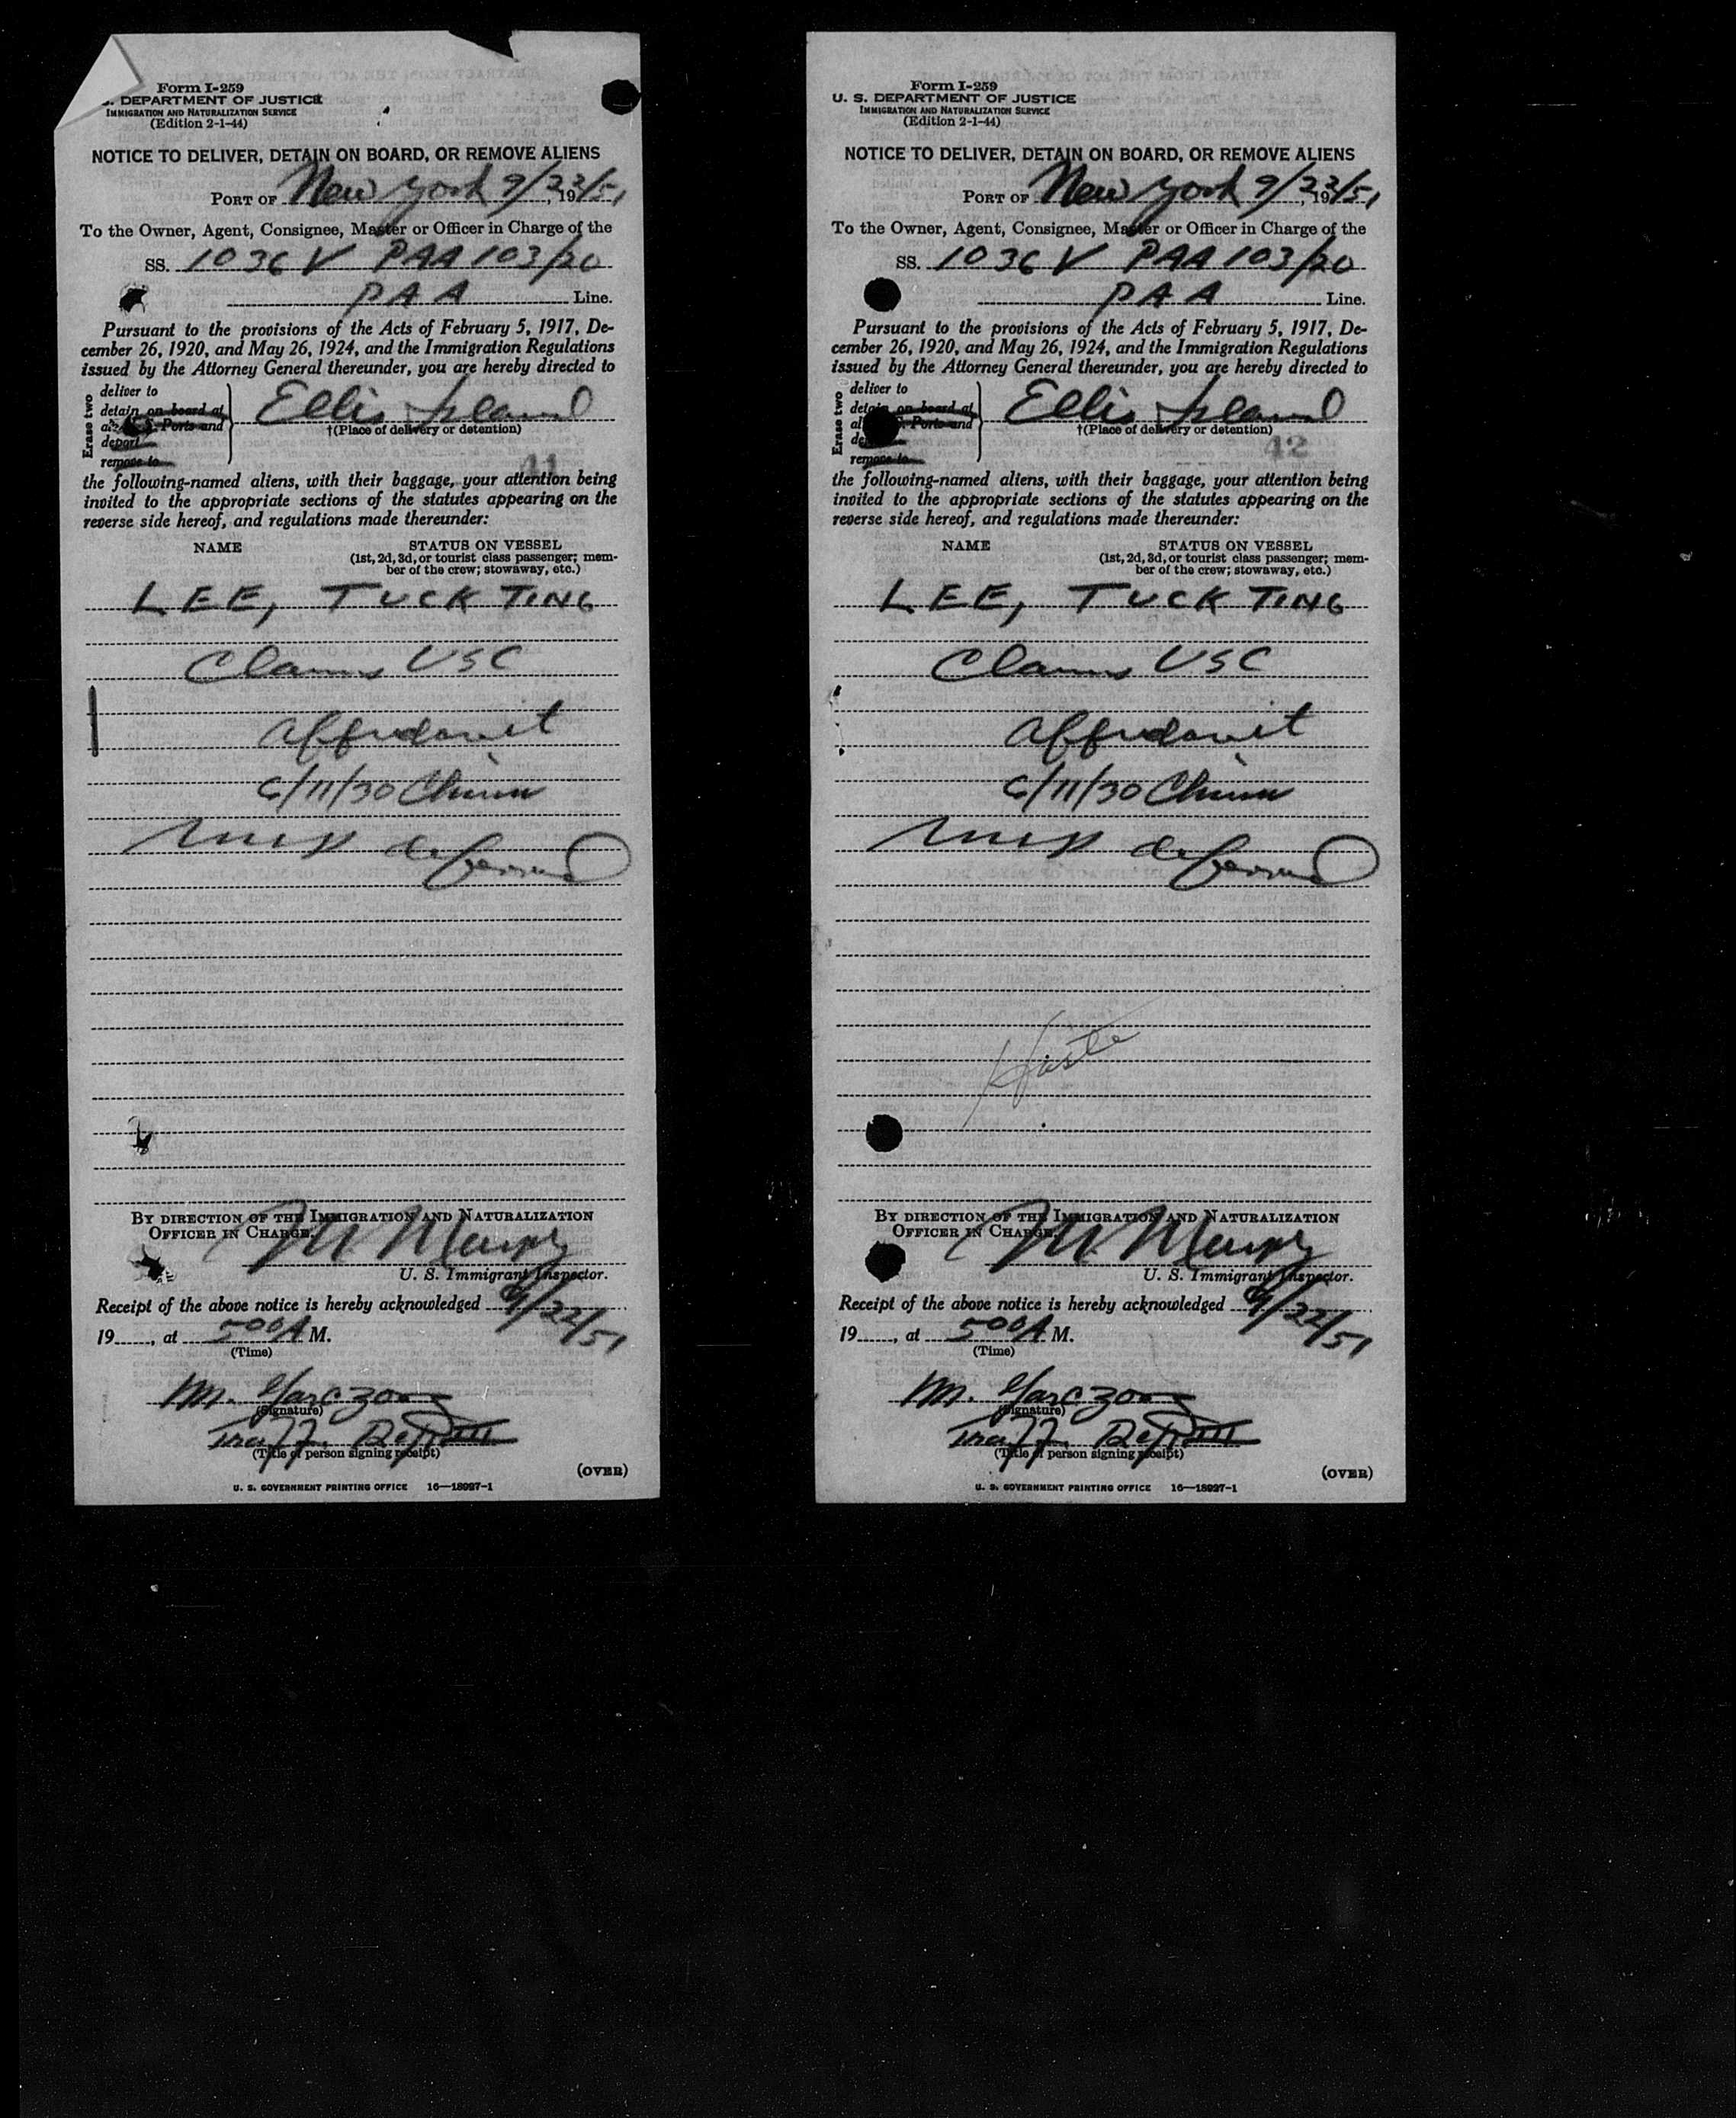 Form I-259
. DEPARTMENT OF JUSTICE
IMMIGRATION AND NATURALIZATION SERVICE
(Edition 2-1-44)
NOTICE TO DELIVER, DETAIN ON BOARD, OR REMOVE ALIENS
PORT OF New York 9/22/51, 19
To the Owner, Agent, Consignee, Master or Officer in Charge of the
SS. 1036 V PAA 103/20
PAA Line.
Pursuant to the provisions of the Acts of February 5, 1917, De-
cember 26, 1920, and May 26, 1924, and the Immigration Regulations
issued by the Attorney General thereunder, you are hereby directed to
Erase two
deliver to
detain on board at
Ports and
deport
remove to
Ellis Island
†(Place of delivery or detention)
41
the following-named aliens, with their baggage, your attention being
invited to the appropriate sections of the statutes appearing on the
reverse side hereof, and regulations made thereunder:
NAME STATUS ON VESSEL
(1st, 2d, 3d, or tourist class passenger; mem-
ber of the crew; stowaway, etc.)
LEE, TUCK TING
Claims USC
Affidavit
6/11/30 China
deferred
BY DIRECTION OF THE IMMIGRATION AND NATURALIZATION
OFFICER IN CHARGE.
U. S. Immigrant Inspector.
Receipt of the above notice is hereby acknowledged 9/22/51
19, at 500 A M.
(Time)
M.
(Signature)
Traff. Rep.
(Title of person signing receipt)
(OVER)
U. S. GOVERNMENT PRINTING OFFICE 16—18927-1
Form I-259
U. S. DEPARTMENT OF JUSTICE
IMMIGRATION AND NATURALIZATION SERVICE
(Edition 2-1-44)
NOTICE TO DELIVER, DETAIN ON BOARD, OR REMOVE ALIENS
PORT OF New York 9/22/51, 19
To the Owner, Agent, Consignee, Master or Officer in Charge of the
SS. 1036 V PAA 103/20
PAA Line.
Pursuant to the provisions of the Acts of February 5, 1917, De-
cember 26, 1920, and May 26, 1924, and the Immigration Regulations
issued by the Attorney General thereunder, you are hereby directed to
Erase two
deliver to
detain on board at
Ports and
remove to
Ellis Island
†(Place of delivery or detention)
42
the following-named aliens, with their baggage, your attention being
invited to the appropriate sections of the statutes appearing on the
reverse side hereof, and regulations made thereunder:
NAME STATUS ON VESSEL
(1st, 2d, 3d, or tourist class passenger; mem-
ber of the crew; stowaway, etc.)
LEE, TUCK TING
Claims USC
Affidavit
6/11/30 China
deferred
BY DIRECTION OF THE IMMIGRATION AND NATURALIZATION
OFFICER IN CHARGE.
U. S. Immigrant Inspector.
Receipt of the above notice is hereby acknowledged 9/22/51
19, at 500 A M.
(Time)
M.
(Signature)
Traff. Rep.
(Title of person signing receipt)
(OVER)
U. S. GOVERNMENT PRINTING OFFICE 16—18927-1